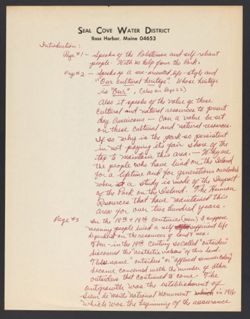 SEAL COVE WATER DISTRICT
Bass Harbor, Maine 04653
Introduction:
Page #1 - Speaks of the Lobsterman and self-reliant
people. With no help from the Park.
Page #2 - Speaks of a sea-oriented life-style and
"Our cultural heritage". Whose heritage
is "Our". (Also on Page 22)
Also it speaks of the value of these
cultural and natural resources to present
day Americans - Can a value be set
on these cultural and natural resources.
If so why is the Park so persistent
in not paying its fair share of the
to maintain this area - Why are
the people who have lived on the Island
for a lifetime and for generations overlooked
when a study is made of the Impact
of the Park on the Island. The Human
Resources that have maintained this
area for over two hundred years.
Page #3 In the 18th + 19th centuries (years) I suppose
meaning people lived a self life
dependent on the resources of land + sea.
Then - in the 19th century so called "outsiders"
discovered the aesthetic values of this land.
These same "outsiders" or "affluent summer colony"
became concerned with the number of other
outsiders that continued to come. This
outgrowth was the establishment of
Sieur de Monts National Monument in 1916
which was the beginning of the